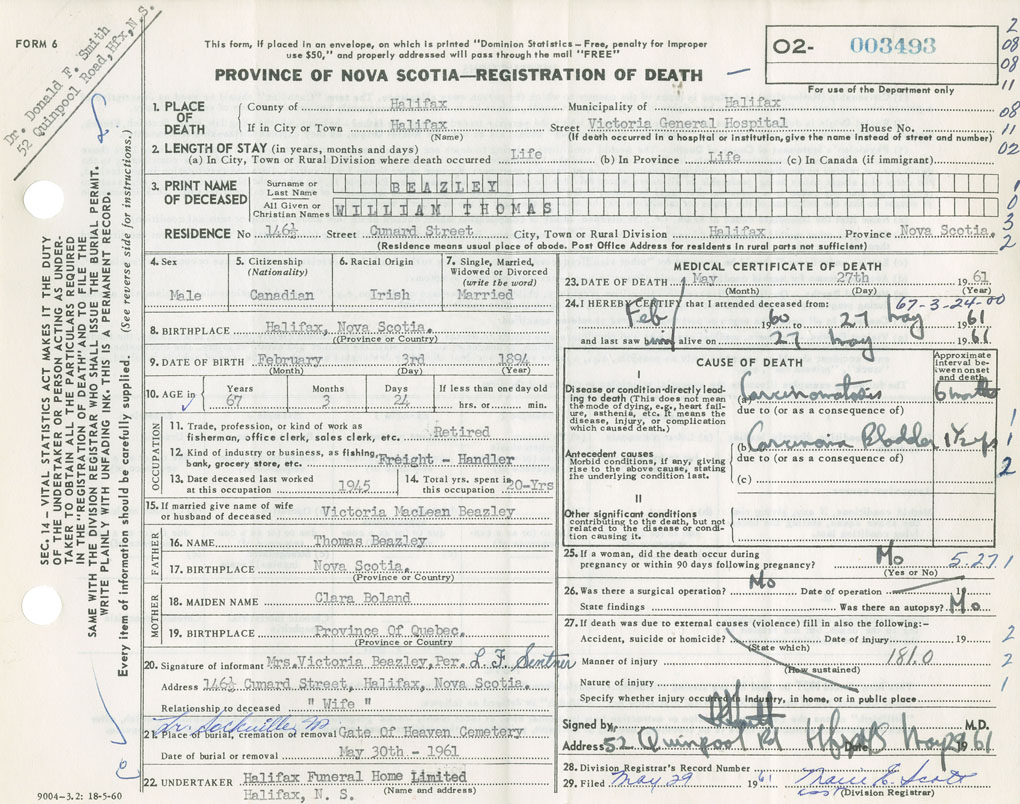 FORM 6
Dr. Donald F. Smith
52 Quinpool Road, Hfx, N.S.
This form, if placed in an envelope, on which is printed "Dominion Statistics—Free, penalty for improper
use $50," and properly addressed will pass through the mail "FREE"
PROVINCE OF NOVA SCOTIA—REGISTRATION OF DEATH
02- 003493
For use of the Department only
2
08
08
11
08
11
02
1
0
3
2
SEC. 14 — VITAL STATISTICS ACT MAKES IT THE DUTY
OF THE UNDERTAKER OR PERSON ACTING AS UNDER-
TAKER TO OBTAIN ALL THE PARTICULARS REQUIRED
IN THE "REGISTRATION OF DEATH" AND TO FILE THE
SAME WITH THE DIVISION REGISTRAR WHO SHALL ISSUE THE BURIAL PERMIT.
WRITE PLAINLY WITH UNFADING INK. THIS IS A PERMANENT RECORD.
Every item of information should be carefully supplied. (See reverse side for instructions.)
1. PLACE OF DEATH
County of Halifax Municipality of Halifax
If in City or Town Halifax Street Victoria General Hospital House No.
(Name) (If death occurred in a hospital or institution, give the name instead of street and number)
2. LENGTH OF STAY (in years, months and days)
(a) In City, Town or Rural Division where death occurred Life (b) In Province Life (c) In Canada (if immigrant)
3. PRINT NAME OF DECEASED
Surname or Last Name BEAZLEY
All Given or Christian Names WILLIAM THOMAS
RESIDENCE No 146½ Street Cunard Street City, Town or Rural Division Halifax Province Nova Scotia.
(Residence means usual place of abode. Post Office Address for residents in rural parts not sufficient)
4. Sex Male
5. Citizenship (Nationality) Canadian
6. Racial Origin Irish
7. Single, Married, Widowed or Divorced (write the word) Married
8. BIRTHPLACE Halifax, Nova Scotia.
(Province or Country)
9. DATE OF BIRTH February 3rd 1894
(Month) (Day) (Year)
10. AGE in Years 67 Months 3 Days 24 If less than one day old hrs. or min.
OCCUPATION
11. Trade, profession, or kind of work as
fisherman, office clerk, sales clerk, etc. Retired
12. Kind of industry or business, as fishing,
bank, grocery store, etc. Freight - Handler
13. Date deceased last worked at this occupation 1945
14. Total yrs. spent in this occupation 20-Yrs
15. If married give name of wife
or husband of deceased Victoria MacLean Beazley
FATHER
16. NAME Thomas Beazley
17. BIRTHPLACE Nova Scotia.
(Province or Country)
MOTHER
18. MAIDEN NAME Clara Boland
19. BIRTHPLACE Province Of Quebec.
(Province or Country)
20. Signature of informant Mrs. Victoria Beazley, Per. L. F. Sentner
Address 146½ Cunard Street, Halifax, Nova Scotia.
Relationship to deceased " Wife "
Lr. Sackville
21. Place of burial, cremation or removal Gate Of Heaven Cemetery
Date of burial or removal May 30th - 1961
22. UNDERTAKER Halifax Funeral Home Limited
(Name and address)
Halifax, N. S.
9004-3.2: 18-5-60
MEDICAL CERTIFICATE OF DEATH
23. DATE OF DEATH May 27th 1961
(Month) (Day) (Year)
24. I HEREBY CERTIFY that I attended deceased from: 67-3-24-00
Feb 1960 to 27 May 1961
and last saw him alive on 27 May 1961
CAUSE OF DEATH
Approximate interval between onset and death
I
Disease or condition directly lead-
ing to death (This does not mean
the mode of dying, e.g., heart failure,
asthenia, etc. It means the
disease, injury, or complication
which caused death.)
(a) Carcinomatosis 6 months
due to (or as a consequence of)
(b) Carcinoma Bladder 1½ yrs
due to (or as a consequence of)
(c)
Antecedent causes
Morbid conditions, if any, giving
rise to the above cause, stating
the underlying condition last.
II
Other significant conditions
contributing to the death, but not
related to the disease or condi-
tion causing it.
1
1
2
25. If a woman, did the death occur during
pregnancy or within 90 days following pregnancy? No 5.27.1
(Yes or No)
26. Was there a surgical operation? No Date of operation
State findings Was there an autopsy? No
27. If death was due to external causes (violence) fill in also the following:—
Accident, suicide or homicide? Date of injury 19 2
(State which)
Manner of injury 181.0 2
(How sustained)
Nature of injury 1
Specify whether injury occurred in industry, in home, or in public place
Signed by M.D.
Address 52 Quinpool Rd Hfx NS Date May 1961
28. Division Registrar's Record Number
29. Filed May 29 1961 Marie E. Scott
(Division Registrar)